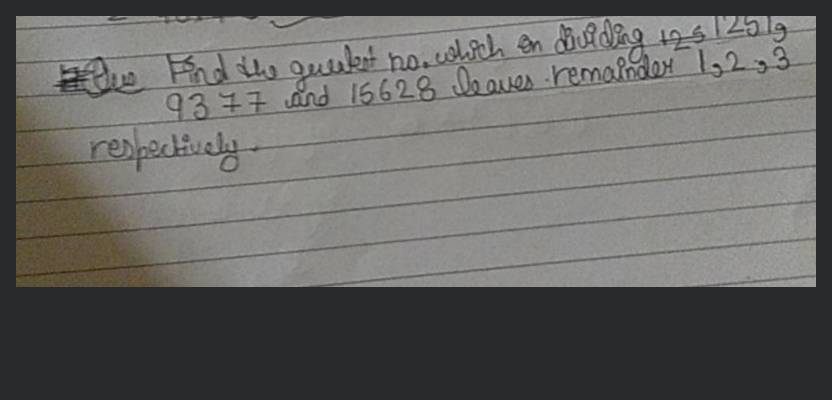 Que Find the greatest no. which on dividing 1251,
9377 and 15628 leaves remainder 1, 2, 3
respectively.